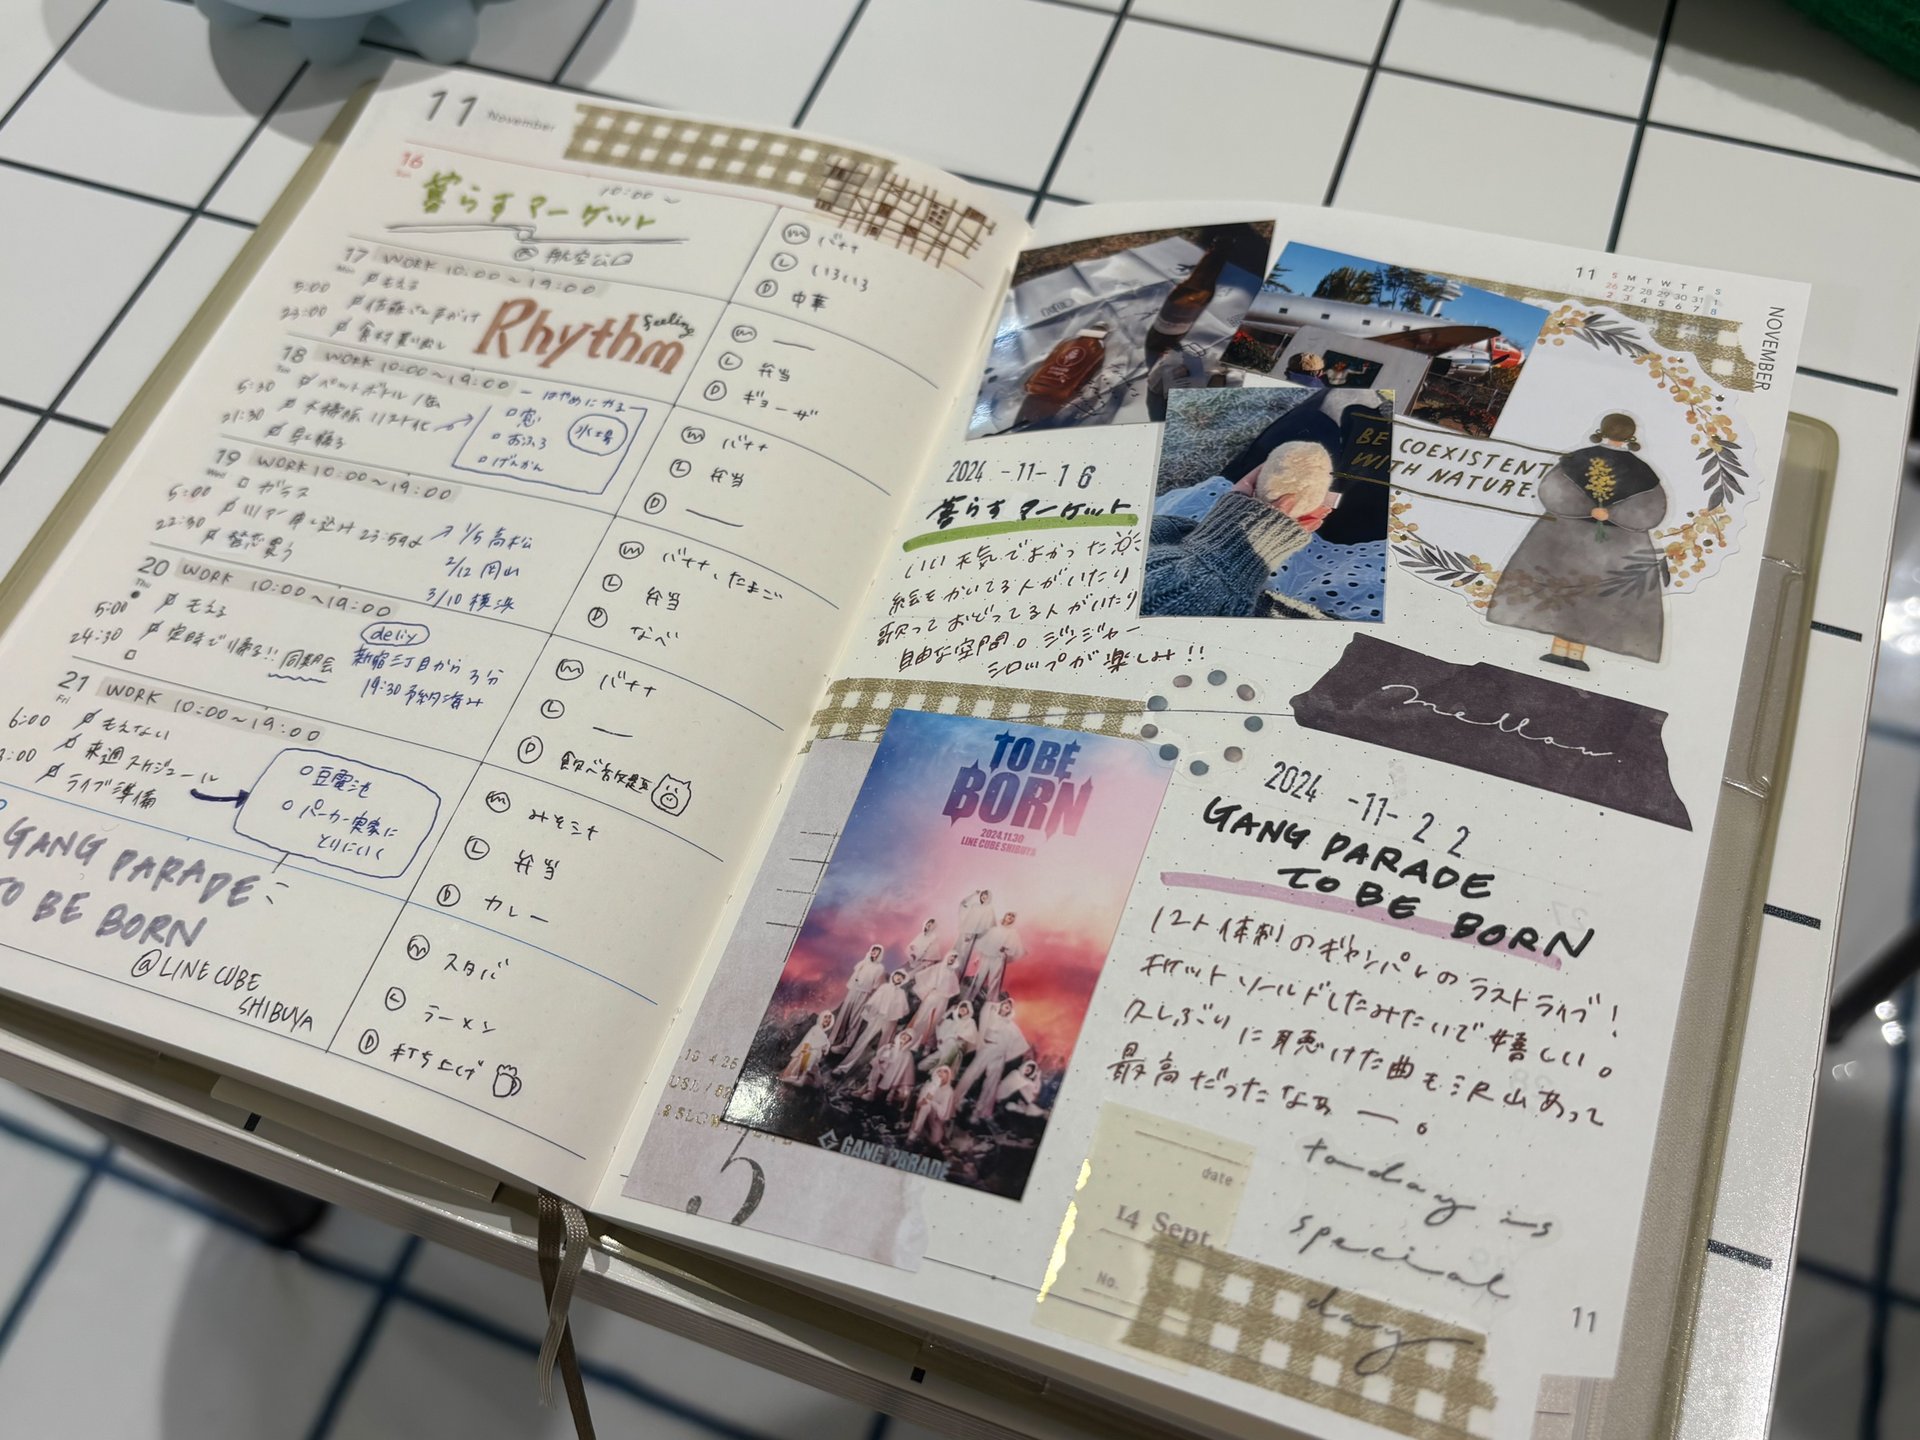 11 November
16
10:00〜
暮らすマーケット
@航空公園
17 Mon WORK 10:00〜19:00
5:00 もえる
23:00
食材買い出し
Rhythm
feeling
18 WORK 10:00〜19:00
5:30 ペットボトル/缶
21:30 大掃除リスト化
早く寝る
はやめにやる
窓
おふろ
げんかん
水場
19 Wed WORK 10:00〜19:00
5:00 ガラス
22:30 申し込み 23:59まで
買う
1/5 高松
2/12 岡山
3/10 横浜
20 Thu WORK 10:00〜19:00
5:00 もえる
24:30 定時で帰る!! 同期会
deliy
新宿三丁目から3分
19:30 予約済み
21 Fri WORK 10:00〜19:00
6:00 もえない
来週スケジュール
ライブ準備
豆電池
パーカー実家に
とりにいく
GANG PARADE
TO BE BORN
@LINE CUBE
SHIBUYA
M バナナ
L いろいろ
D 中華
M —
L 弁当
D ギョーザ
M バナナ
L 弁当
D —
M バナナ、たまご
L 弁当
D なべ
M バナナ
L —
D 飲べ放題
M みそ汁
L 弁当
D カレー
M スタバ
L ラーメン
D 打ち上げ
11 S M T W T F S
26 27 28 29 30 31 1
2 3 4 5 6 7 8
NOVEMBER
BE COEXISTENT
WITH NATURE.
2024-11-16
暮らすマーケット
いい天気でよかった
絵をかいてる人がいたり
歌っておどってる人がいたり
自由な空間。ジンジャー
シロップが楽しみ!!
mellow.
TO BE
BORN
2024.11.30
LINE CUBE SHIBUYA
GANG PARADE
2024-11-22
GANG PARADE
TO BE BORN
12人体制のギャンパレのラストライブ!
チケットソールドしたみたいで嬉しい。
久しぶりに聴けた曲も沢山あって
最高だったなぁー。
5
date
14 Sept.
No.
today is
special
day
11